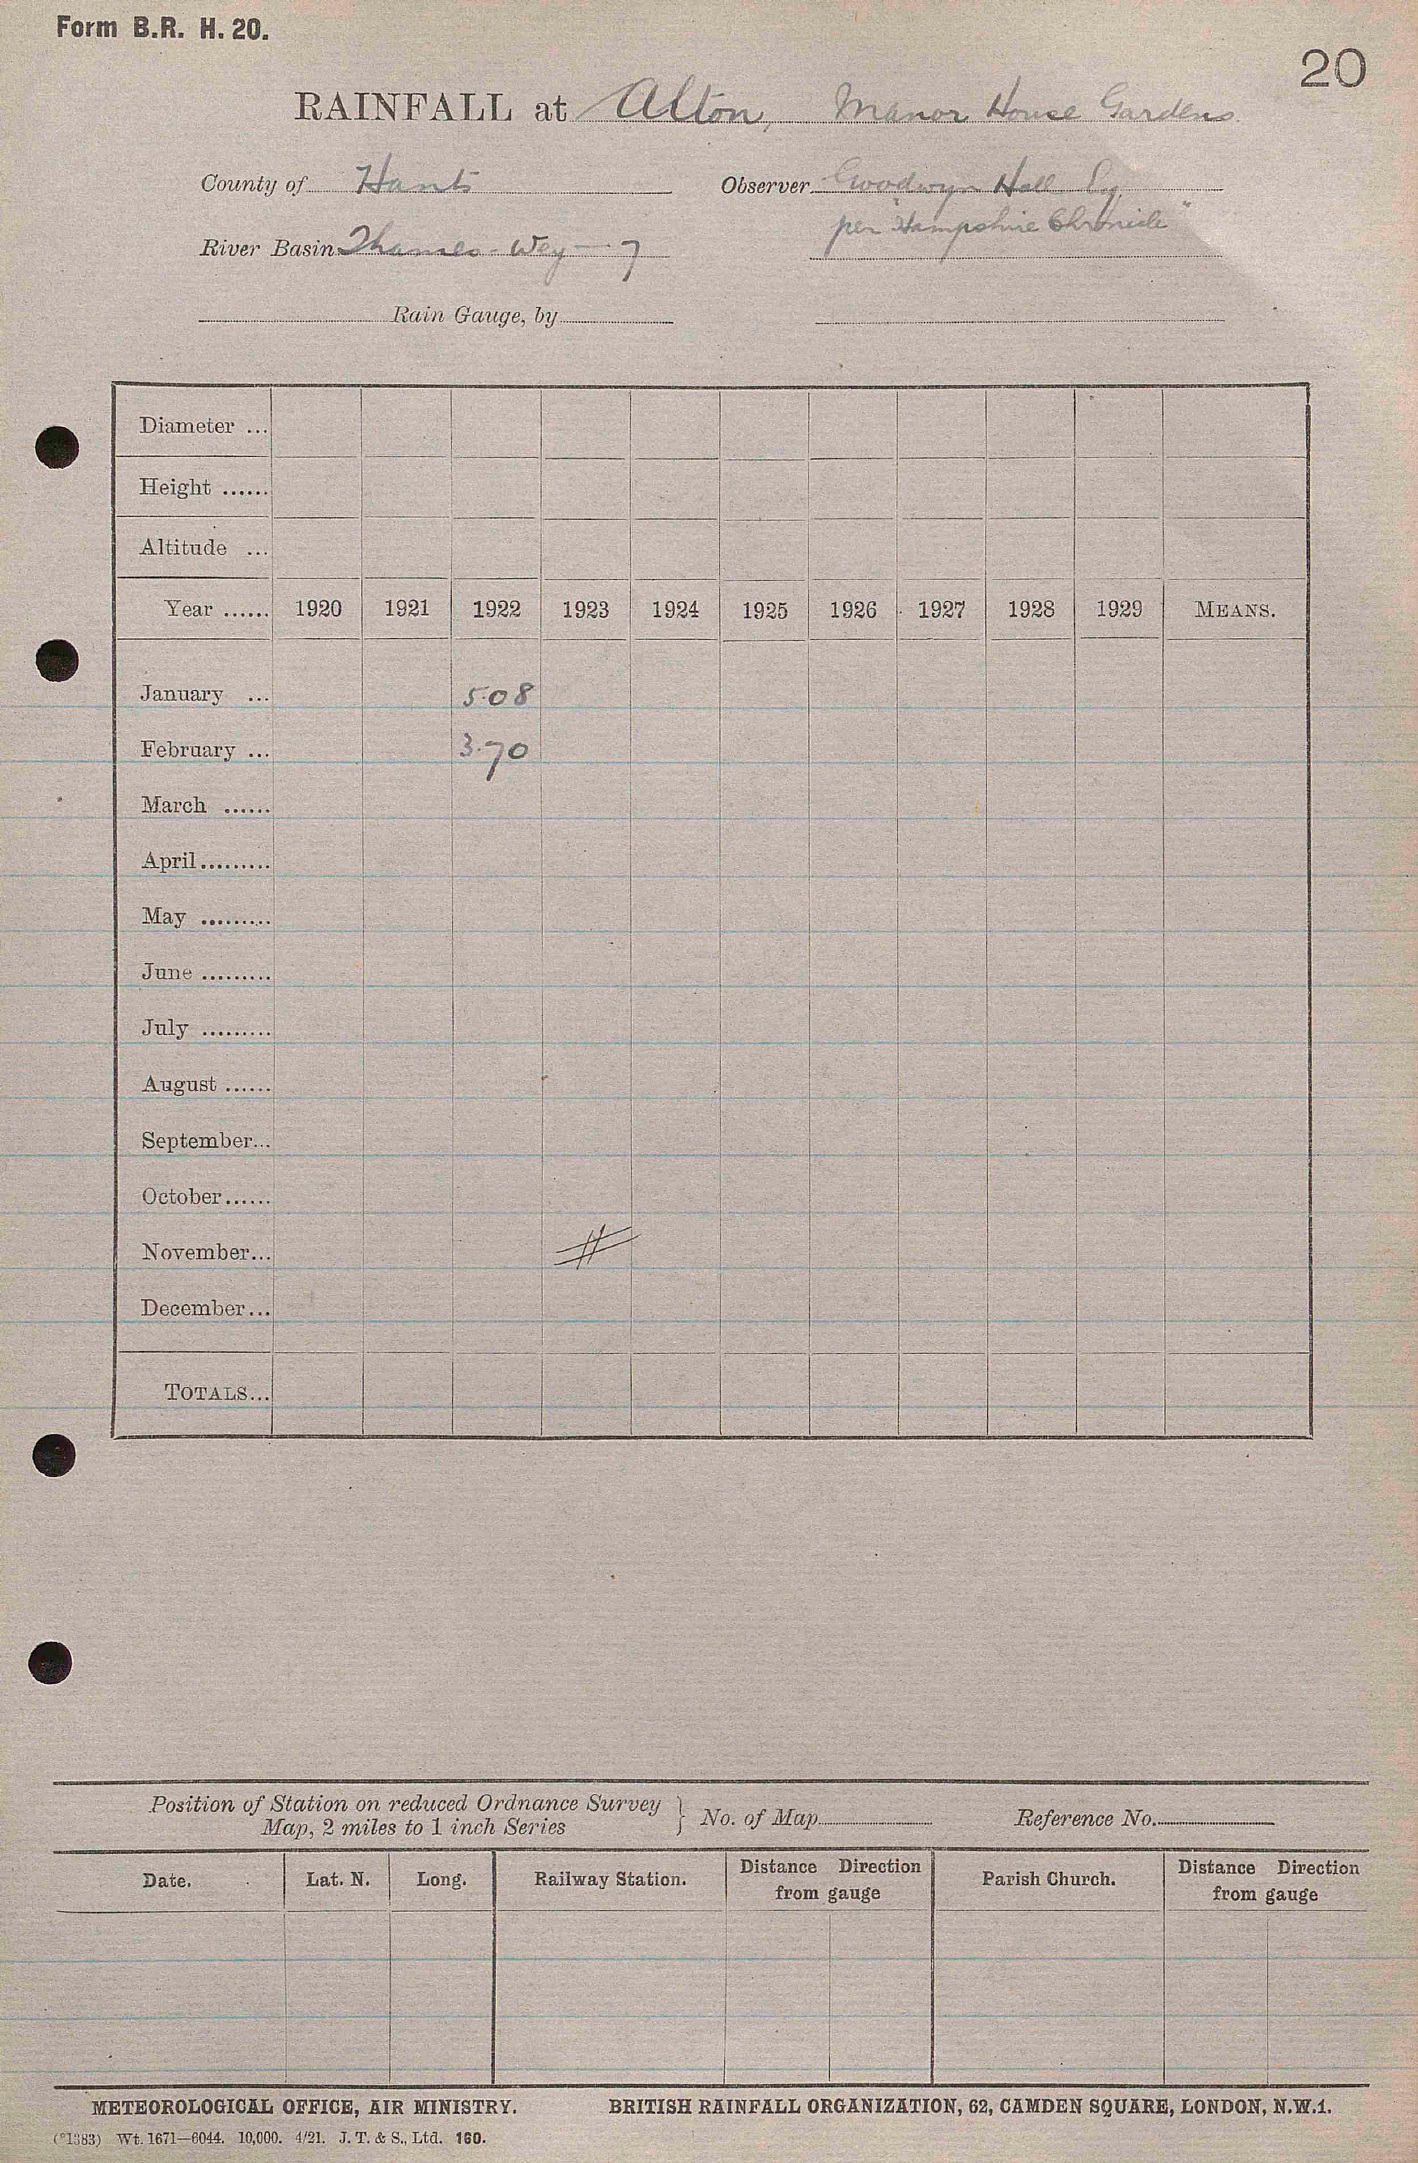 Form B.R. H. 20.
20
RAINFALL at Alton, Manor House Gardens
County of Hants Observer Goodwyn Hall Esq.
River Basin Thames - Wey - 7 per "Hampshire Chronicle"
Rain Gauge, by
Diameter ...
Height ......
Altitude ...
Year ...... 1920 1921 1922 1923 1924 1925 1926 1927 1928 1929 MEANS.
January ... 5.08
February ... 3.70
March ......
April.........
May .........
June .........
July .........
August ......
September...
October......
November...
December...
TOTALS...
Position of Station on reduced Ordnance Survey
Map, 2 miles to 1 inch Series } No. of Map Reference No.
Date. Lat. N. Long. Railway Station. Distance Direction from gauge Parish Church. Distance Direction from gauge
METEOROLOGICAL OFFICE, AIR MINISTRY. BRITISH RAINFALL ORGANIZATION, 62, CAMDEN SQUARE, LONDON, N.W.1.
(*1383) Wt. 1671—6044. 10,000. 4/21. J. T. & S., Ltd. 160.